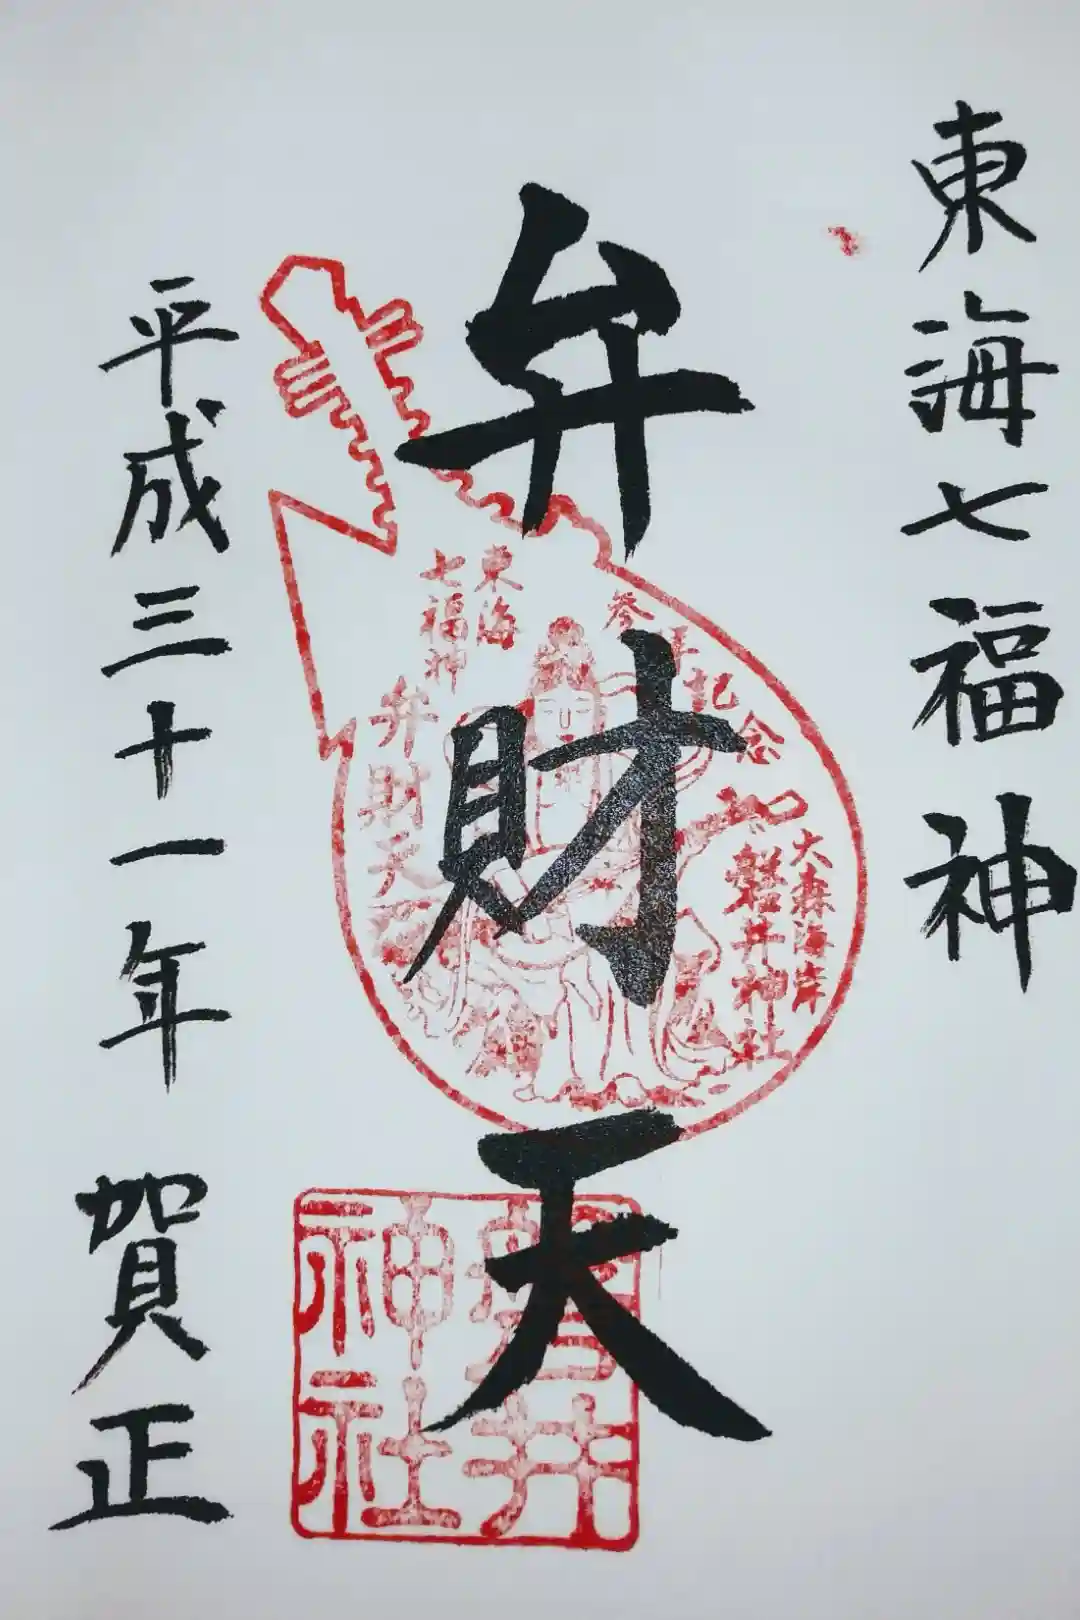 東海七福神
弁財天
平成三十一年 賀正
参拝記念
大森海岸
磐井神社
東海
七福神
弁財天
磐井
神社